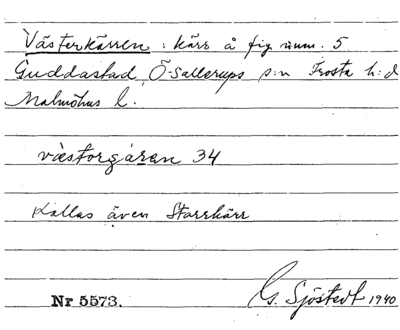 Västerkärren : kärr å fig num. 5
Guddastad, Ö-Sallerups s:n Frosta h:d
Malmöhus l.
västorgáren 34
Kallas även Starrkärr
Nr 5573. G. Sjöstedt 1940